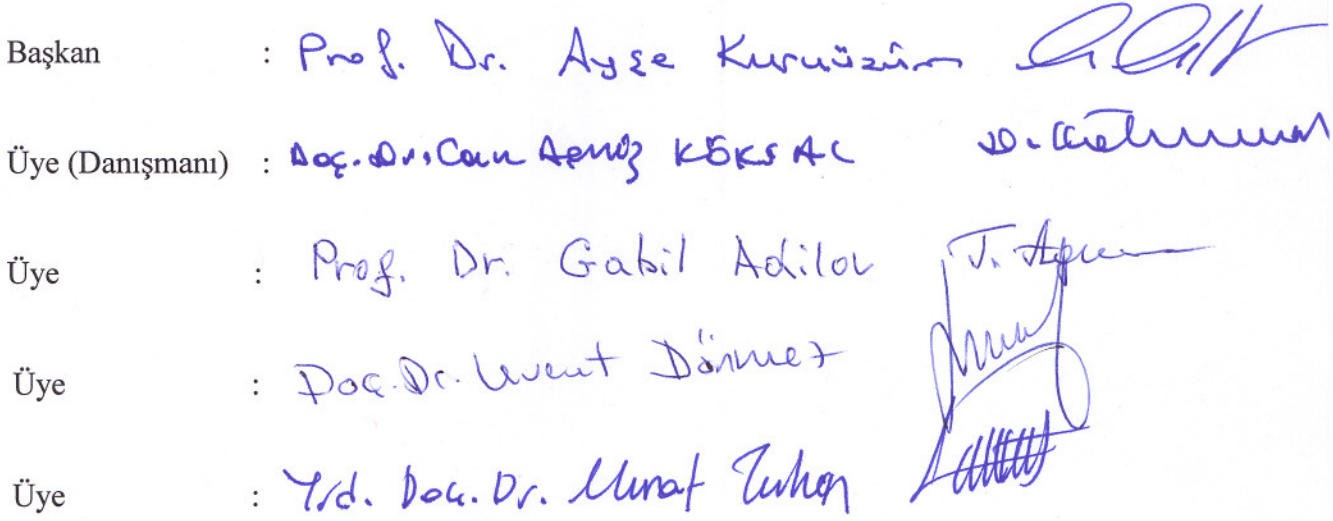 Başkan : Prof. Dr. Ayşe Kuruüzüm
Üye (Danışmanı) : Doç. Dr. Can Deniz KÖKSAL
Üye : Prof. Dr. Gabil Adilov
Üye : Doç. Dr. Levent Dönmez
Üye : Yrd. Doç. Dr. Murat